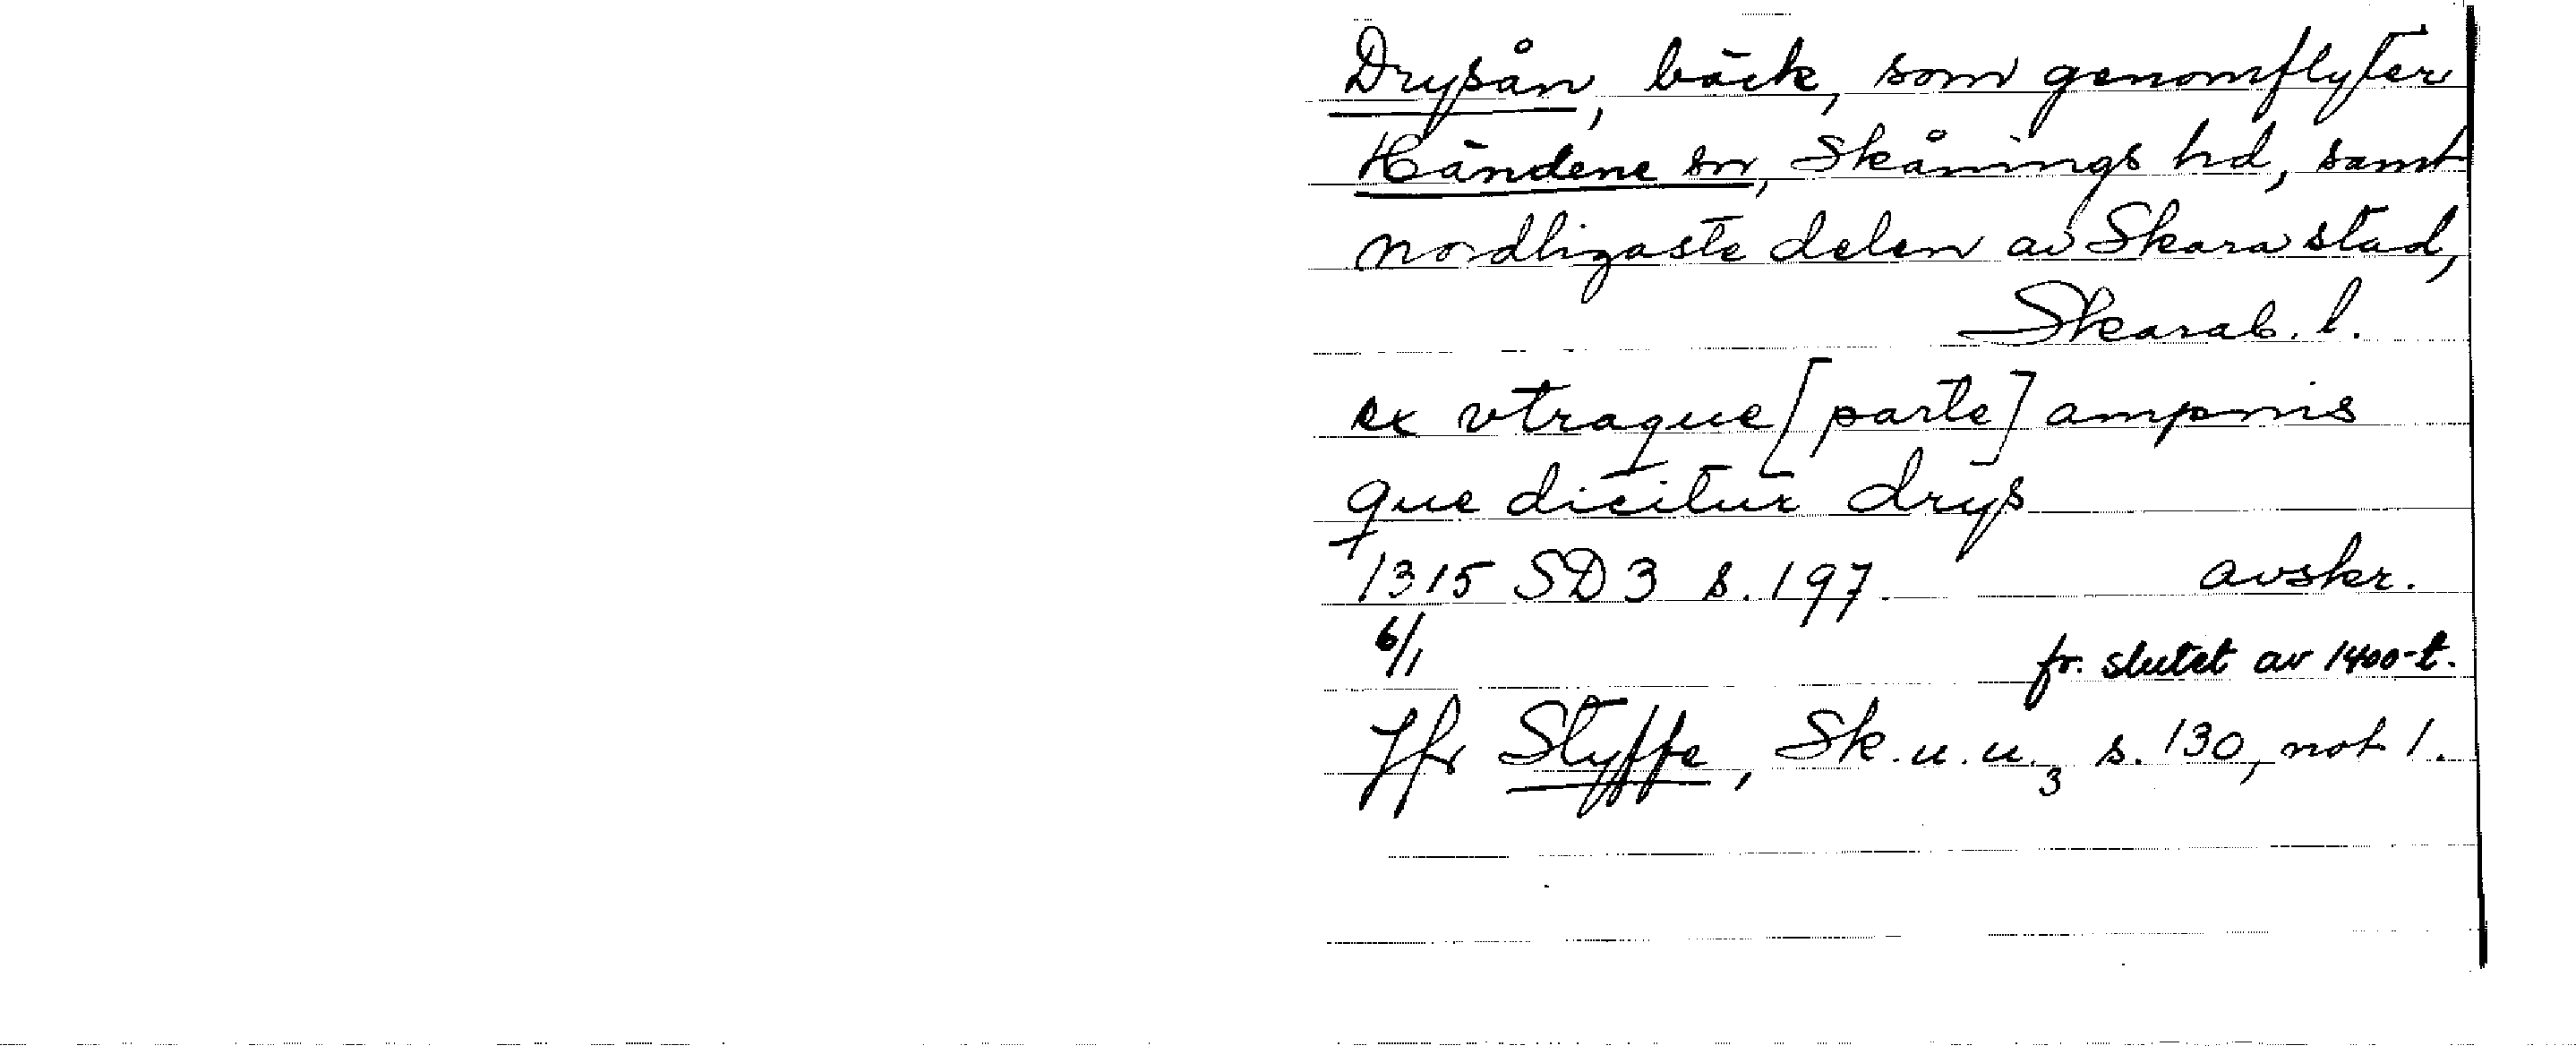 Drysån, bäck, som genomflyter
Händene sn, Skånings hd, samt
nordligaste delen av Skara stad,
Skarab. l.
ex vtraque [parte] ampnis
que dicitur drys
1315 SD 3 s. 197. avskr.
6/1 fr. slutet av 1400-t.
Jfr Styffe, Sk.u.u.3 s. 130, not 1.